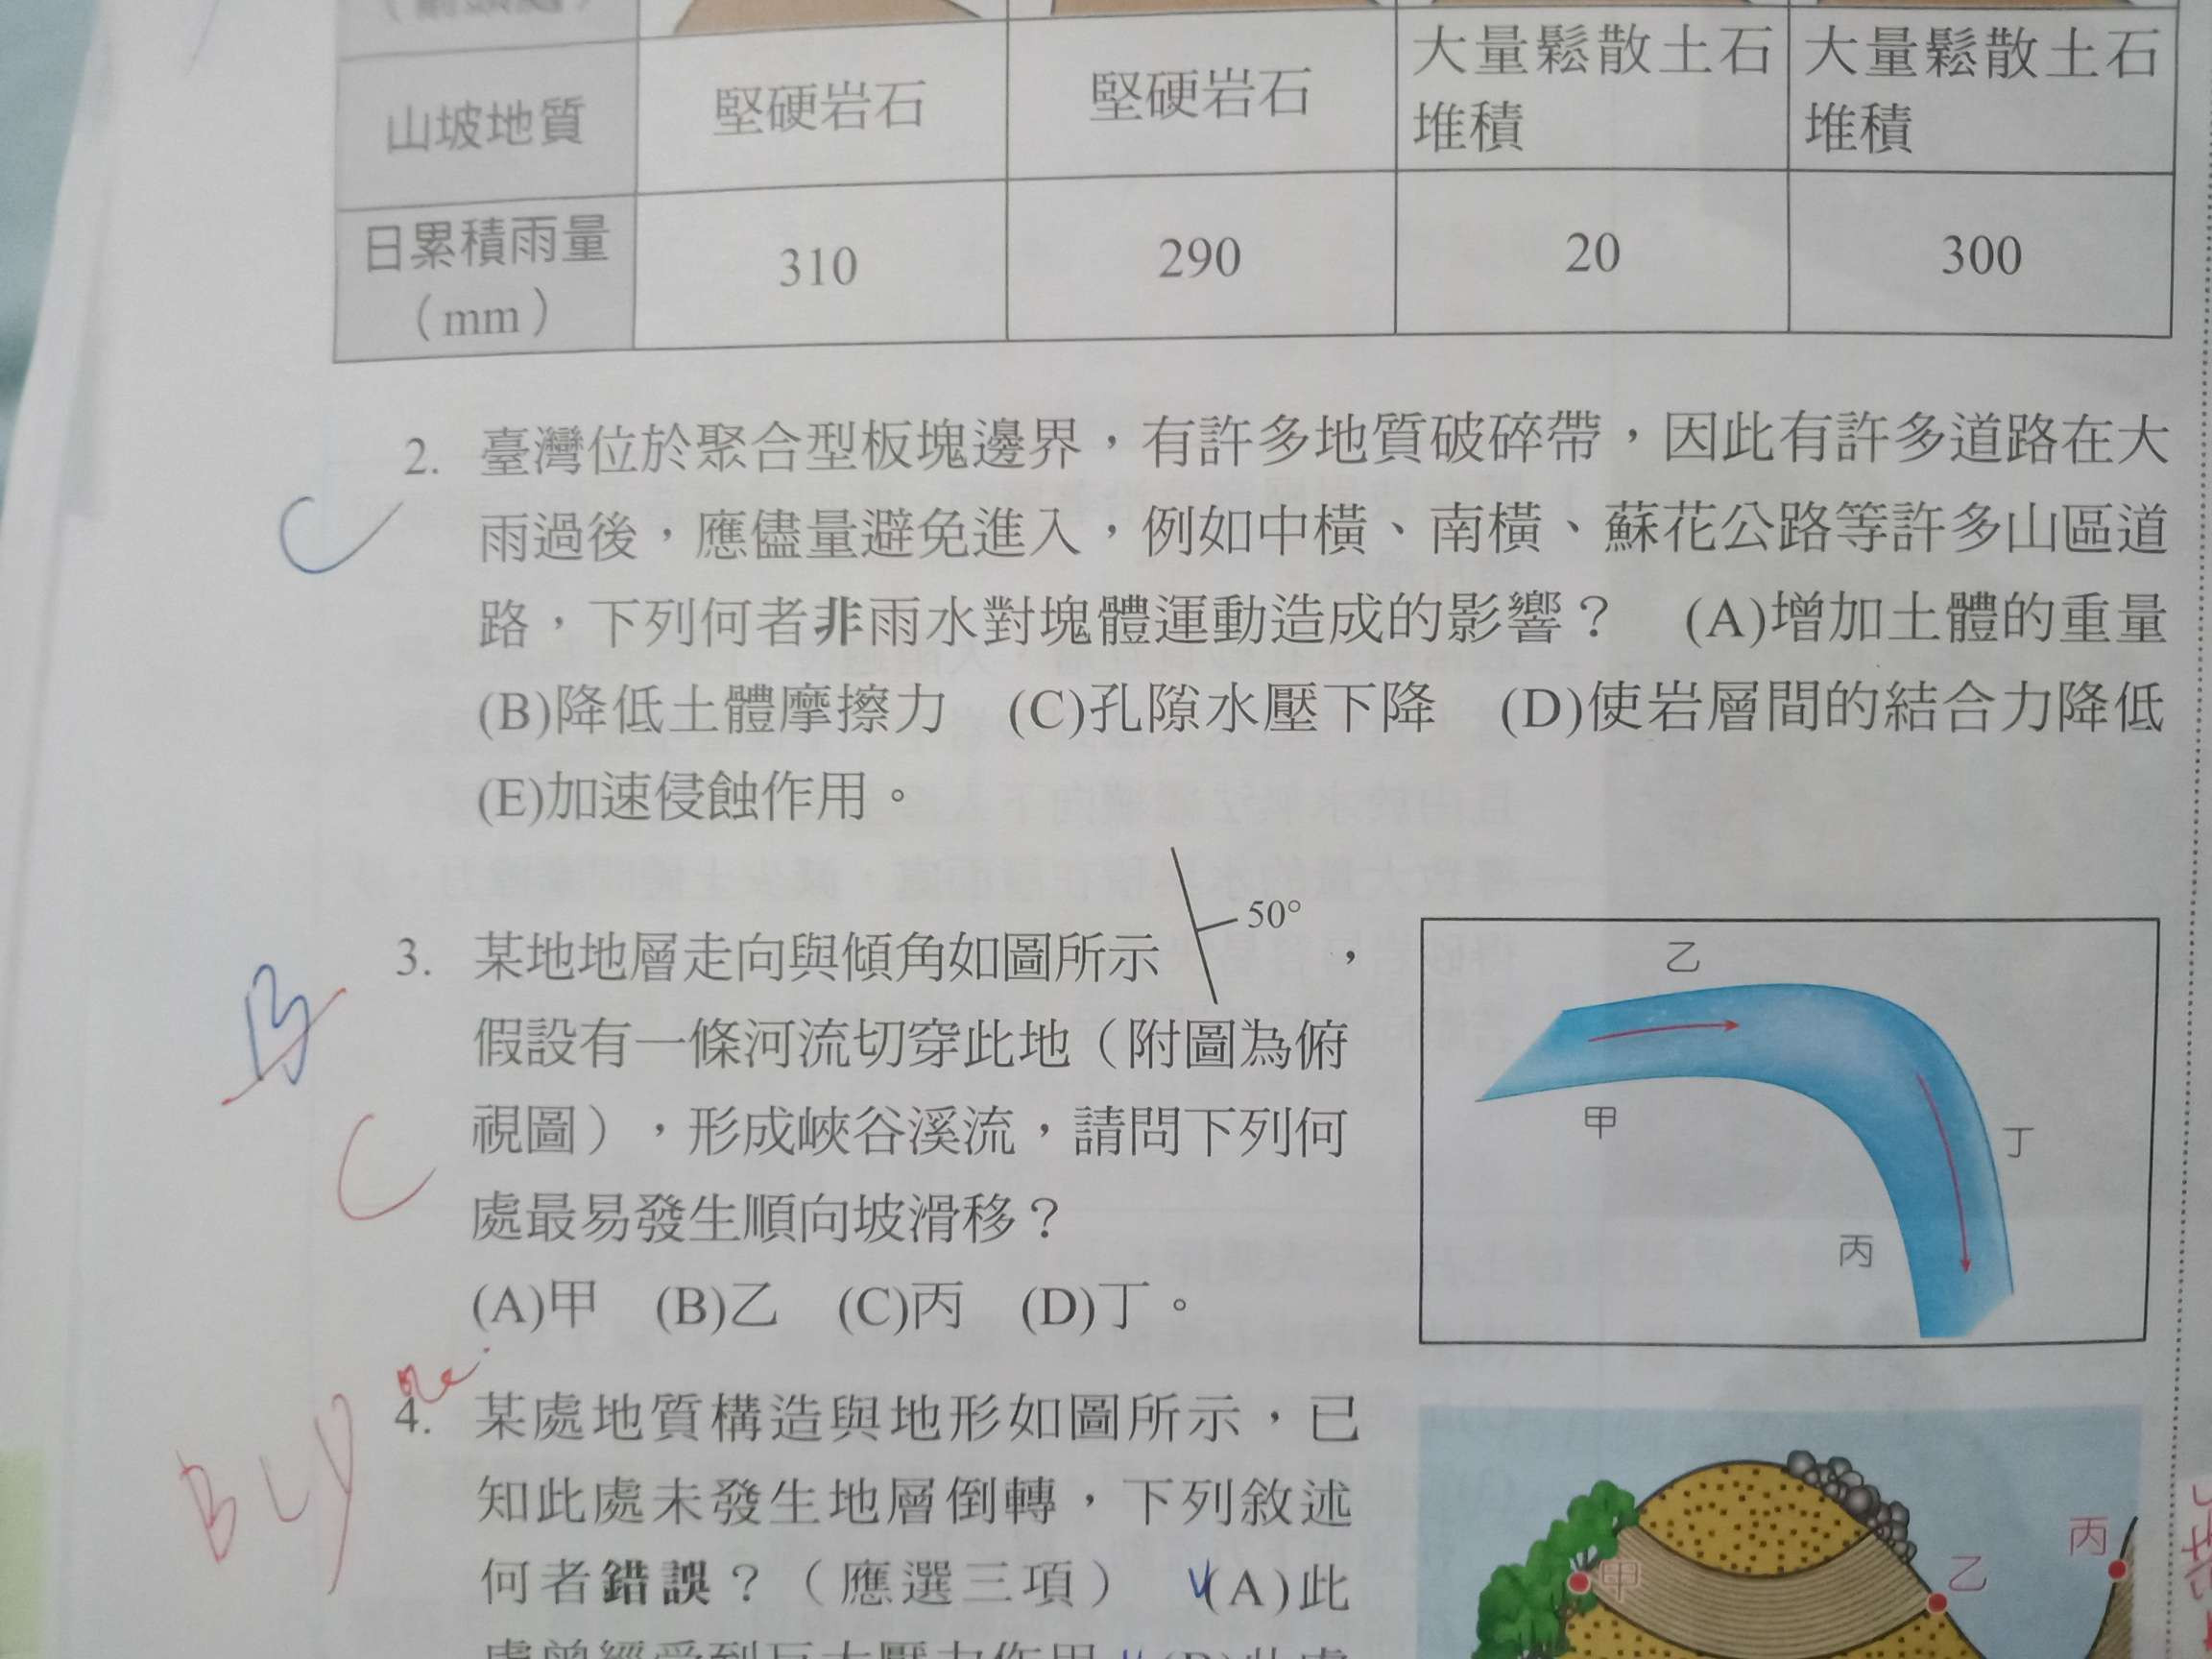 山坡地質 堅硬岩石 堅硬岩石 大量鬆散土石堆積 大量鬆散土石堆積
日累積雨量（mm） 310 290 20 300
C
2. 臺灣位於聚合型板塊邊界，有許多地質破碎帶，因此有許多道路在大
雨過後，應儘量避免進入，例如中橫、南橫、蘇花公路等許多山區道
路，下列何者非雨水對塊體運動造成的影響？ (A)增加土體的重量
(B)降低土體摩擦力 (C)孔隙水壓下降 (D)使岩層間的結合力降低
(E)加速侵蝕作用。
B
C
3. 某地地層走向與傾角如圖所示 50°，
假設有一條河流切穿此地（附圖為俯
視圖），形成峽谷溪流，請問下列何
處最易發生順向坡滑移？
(A)甲 (B)乙 (C)丙 (D)丁。
乙
甲
丁
丙
4. 某處地質構造與地形如圖所示，已
知此處未發生地層倒轉，下列敘述
何者錯誤？（應選三項） (A)此
甲
乙
丙